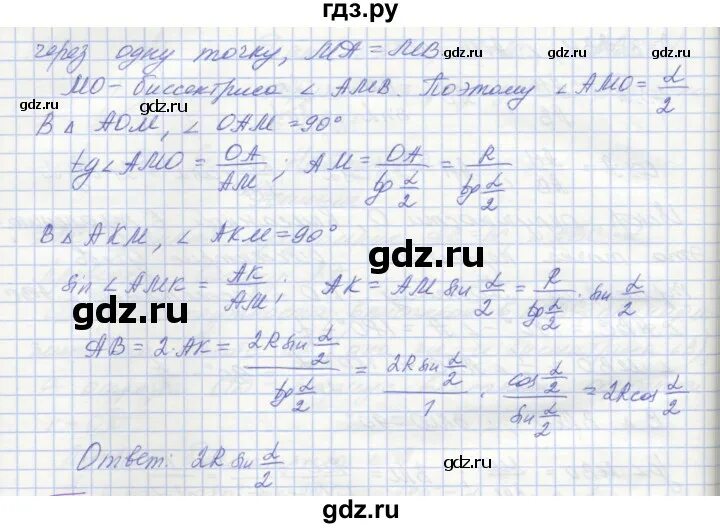 гдз.ру
через одну точку, MA = MB
gdz.ru gdz.ru
MO - биссектриса ∠ AMB. Поэтому ∠ AMO = α/2
gdz.ru gdz.ru
В △ AOM, ∠ OAM = 90°
tg ∠ AMO = OA/AM ; AM = OA/tg α/2 = R/tg α/2
gdz.ru gdz.ru
В △ AKM, ∠ AKM = 90°
gdz.ru
sin ∠ AMK = AK/AM ; AK = AM sin α/2 = R/tg α/2 · sin α/2
gdz.ru gdz.ru
AB = 2 · AK = 2R sin α/2 / tg α/2 = 2R sin α/2 / 1 · cos α/2 / sin α/2 = 2R cos α/2
gdz.ru gdz.ru
Ответ: 2R sin α/2
gdz.ru gdz.ru
gdz.ru